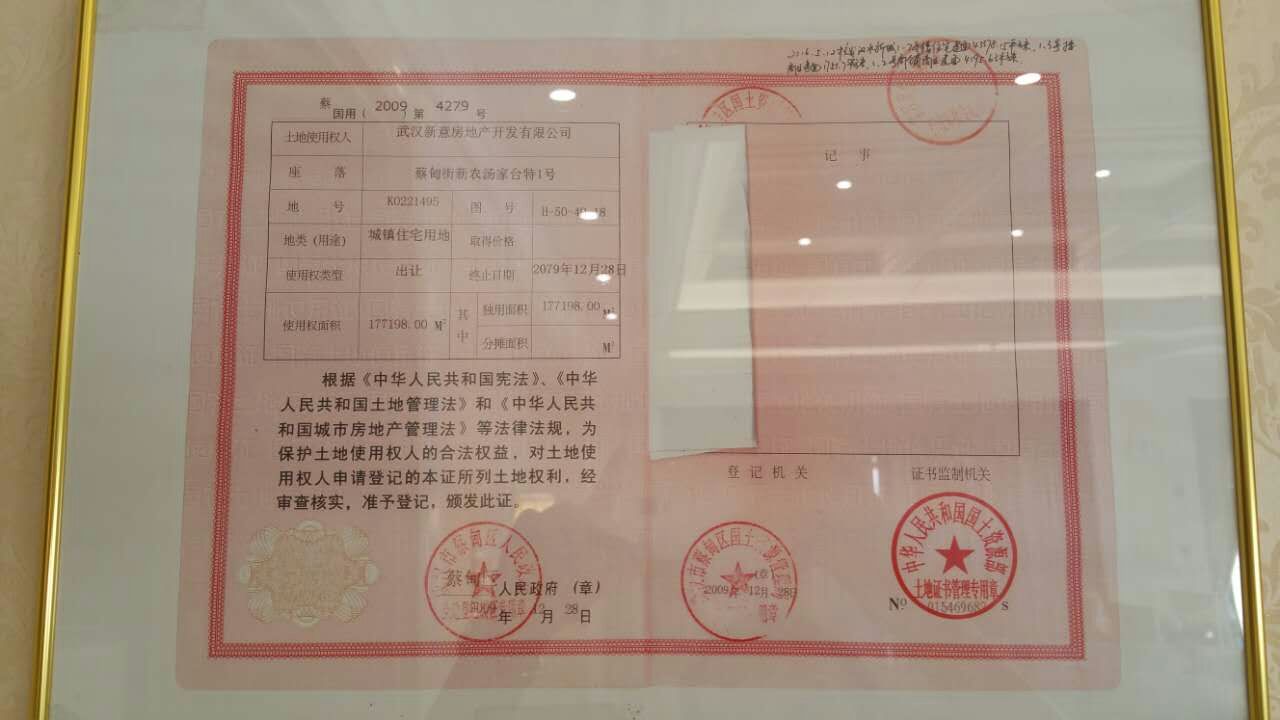 蔡
国用（2009）第 4279 号
土地使用权人 武汉新意房地产开发有限公司
座 落 蔡甸街新农汤家台特1号
地 号 K0221495 图 号 H-50-49-18
地类（用途） 城镇住宅用地 取得价格
使用权类型 出让 终止日期 2079年12月28日
使用权面积 177198.00 M² 其中 独用面积 177198.00 M²
分摊面积 M²
根据《中华人民共和国宪法》、《中华
人民共和国土地管理法》和《中华人民共
和国城市房地产管理法》等法律法规，为
保护土地使用权人的合法权益，对土地使
用权人申请登记的本证所列土地权利，经
审查核实，准予登记，颁发此证。
蔡甸区 人民政府 （章）
2009年 12月 28日
记 事
登 记 机 关
（章）
2009年 12月 28日
证书监制机关
中华人民共和国国土资源部
土地证书管理专用章
Nº 015469687 s